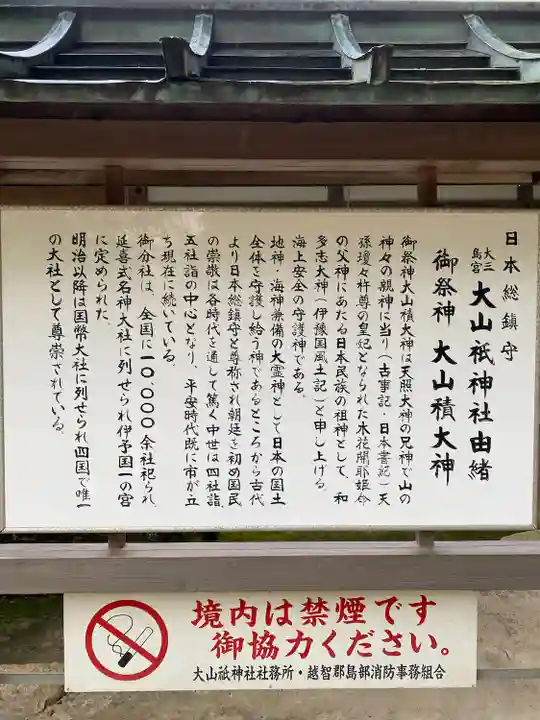 日本総鎮守
大三島宮 大山祇神社由緒
御祭神 大山積大神
御祭神大山積大神は天照大神の兄神で山の
神々の親神に当り(古事記・日本書記)天
孫瓊々杵尊の皇妃となられた木花開耶姫命
の父神にあたる日本民族の祖神として、和
多志大神(伊豫国風土記)と申し上げる。
海上安全の守護神である。
地神・海神兼備の大霊神として日本の国土
全体を守護し給う神であるところから古代
より日本総鎮守と尊称され朝廷を初め国民
の崇敬は各時代を通して篤く中世は四社詣、
五社詣の中心となり、平安時代既に市が立
ち現在に続いている。
御分社は、全国に一〇,〇〇〇余社祀られ、
延喜式名神大社に列せられ伊予国一の宮
に定められた。
明治以降は国幣大社に列せられ四国で唯一
の大社として尊崇されている。
境内は禁煙です
御協力ください。
大山祇神社社務所・越智郡島部消防事務組合